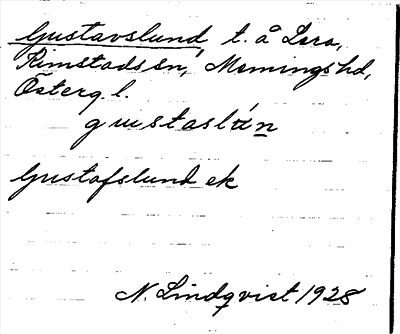 Gustavslund t. å Lera,
Rimstads sn, Memings hd,
Österg. l.
gustaslún
Gustafslund ek
N. Lindqvist 1928